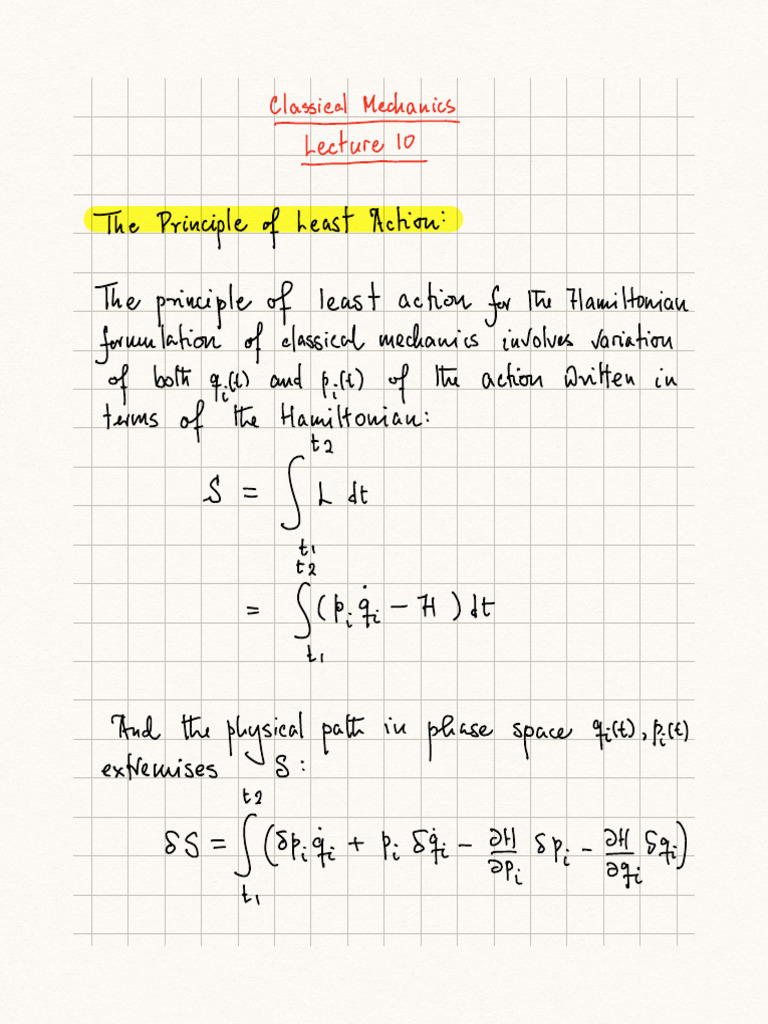 Classical Mechanics
Lecture 10
The Principle of Least Action:
The principle of least action for the Hamiltonian
formulation of classical mechanics involves variation
of both qᵢ(t) and pᵢ(t) of the action written in
terms of the Hamiltonian:
S = ∫_{t₁}^{t₂} L dt
= ∫_{t₁}^{t₂} (pᵢ q̇ᵢ − H) dt
And the physical path in phase space qᵢ(t), pᵢ(t)
extremises S:
δS = ∫_{t₁}^{t₂} (δpᵢ q̇ᵢ + pᵢ δq̇ᵢ − ∂H/∂pᵢ δpᵢ − ∂H/∂qᵢ δqᵢ)